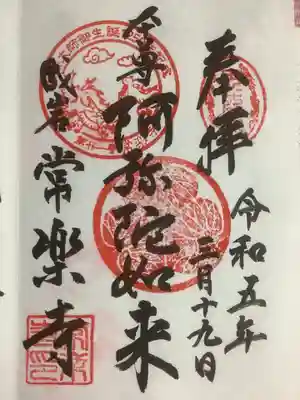 奉拝
令和五年
三月十九日
本尊 阿弥陀如来
成岩 常楽寺